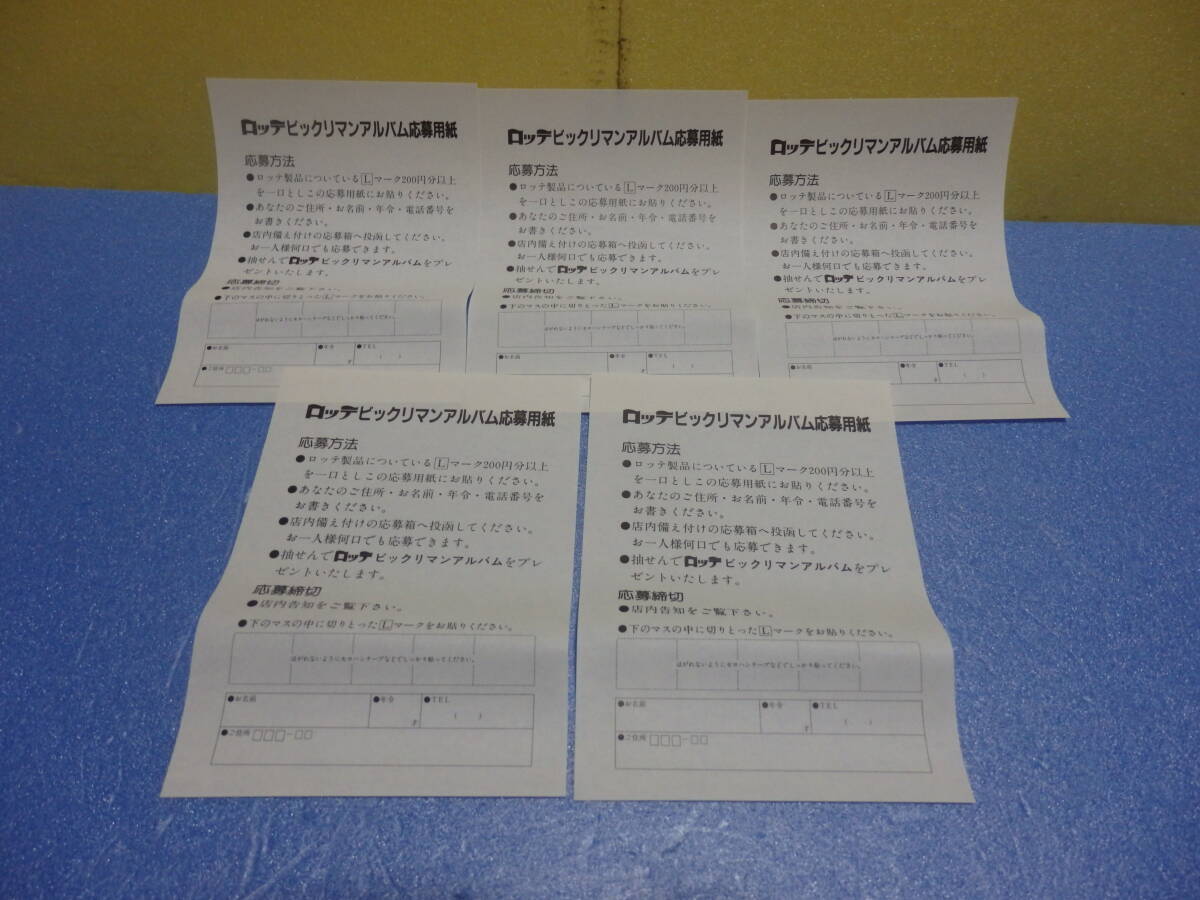 ロッテビックリマンアルバム応募用紙
応募方法
●ロッテ製品についているLマーク200円分以上
を一口としこの応募用紙にお貼りください。
●あなたのご住所・お名前・年令・電話番号を
お書きください。
●店内備え付けの応募箱へ投函してください。
お一人様何口でも応募できます。
●抽せんでロッテビックリマンアルバムをプレ
ゼントいたします。
応募締切
●店内告知をご覧下さい。
●下のマスの中に切りとったLマークをお貼りください。
はがれないようにセロハンテープなどでしっかり貼ってください。
●お名前 ●年令 ●TEL
才 ( )
●ご住所 □□□-□□
ロッテビックリマンアルバム応募用紙
応募方法
●ロッテ製品についているLマーク200円分以上
を一口としこの応募用紙にお貼りください。
●あなたのご住所・お名前・年令・電話番号を
お書きください。
●店内備え付けの応募箱へ投函してください。
お一人様何口でも応募できます。
●抽せんでロッテビックリマンアルバムをプレ
ゼントいたします。
応募締切
●店内告知をご覧下さい。
●下のマスの中に切りとったLマークをお貼りください。
はがれないようにセロハンテープなどでしっかり貼ってください。
●お名前 ●年令 ●TEL
才 ( )
ロッテビックリマンアルバム応募用紙
応募方法
●ロッテ製品についているLマーク200円分以上
を一口としこの応募用紙にお貼りください。
●あなたのご住所・お名前・年令・電話番号を
お書きください。
●店内備え付けの応募箱へ投函してください。
お一人様何口でも応募できます。
●抽せんでロッテビックリマンアルバムをプレ
ゼントいたします。
応募締切
●店内告知をご覧下さい。
●下のマスの中に切りとったLマークをお貼りください。
はがれないようにセロハンテープなどでしっかり貼ってください。
●お名前 ●年令 ●TEL
才 ( )
ロッテビックリマンアルバム応募用紙
応募方法
●ロッテ製品についているLマーク200円分以上
を一口としこの応募用紙にお貼りください。
●あなたのご住所・お名前・年令・電話番号を
お書きください。
●店内備え付けの応募箱へ投函してください。
お一人様何口でも応募できます。
●抽せんでロッテビックリマンアルバムをプレ
ゼントいたします。
応募締切
●店内告知をご覧下さい。
●下のマスの中に切りとったLマークをお貼りください。
はがれないようにセロハンテープなどでしっかり貼ってください。
●お名前 ●年令 ●TEL
才 ( )
●ご住所 □□□-□□
ロッテビックリマンアルバム応募用紙
応募方法
●ロッテ製品についているLマーク200円分以上
を一口としこの応募用紙にお貼りください。
●あなたのご住所・お名前・年令・電話番号を
お書きください。
●店内備え付けの応募箱へ投函してください。
お一人様何口でも応募できます。
●抽せんでロッテビックリマンアルバムをプレ
ゼントいたします。
応募締切
●店内告知をご覧下さい。
●下のマスの中に切りとったLマークをお貼りください。
はがれないようにセロハンテープなどでしっかり貼ってください。
●お名前 ●年令 ●TEL
才 ( )
●ご住所 □□□-□□